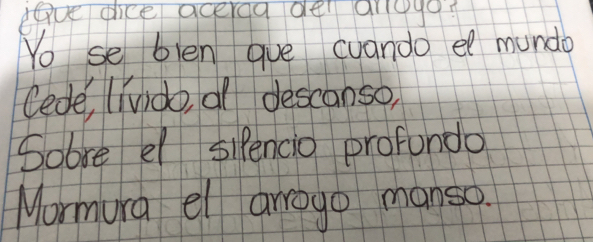 ¿Que dice acerca del arroyo?
Yo se bien que cuando el mundo
Cede, lívido, al descanso,
Sobre el silencio profondo
Mormura el arroyo manso.